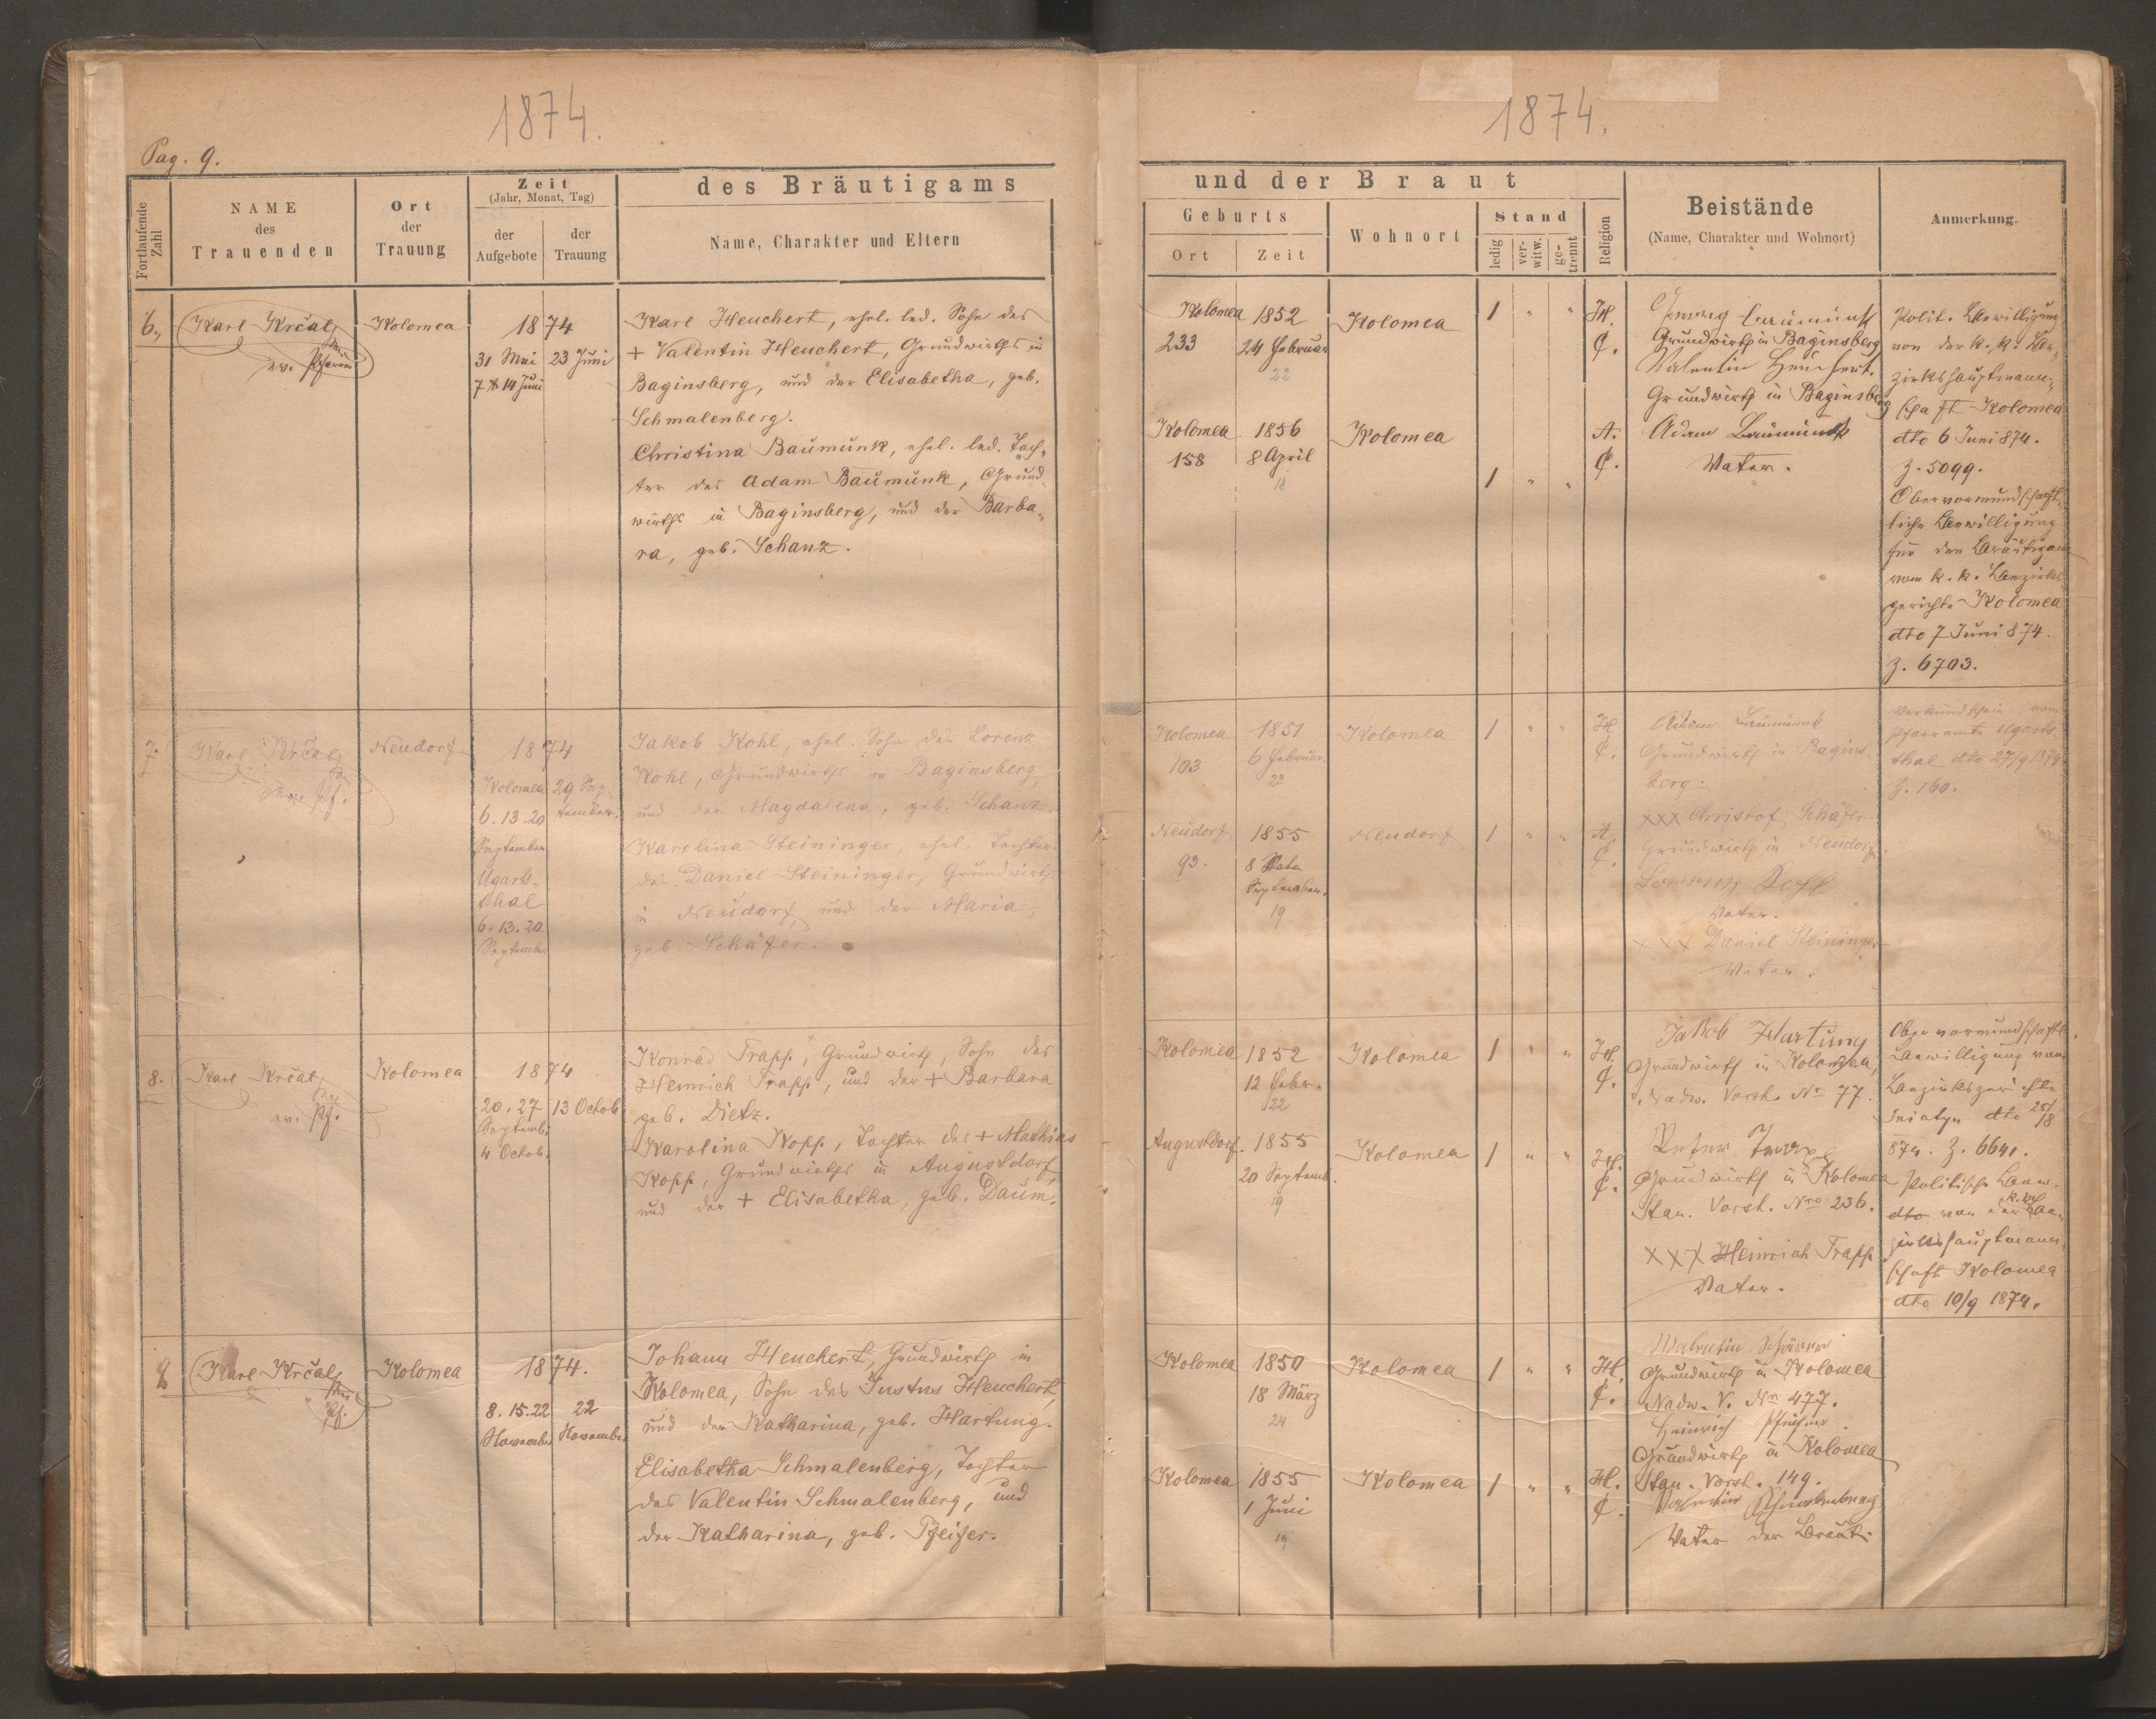 1874.
Pag. 9.
Fortlaufende Zahl
NAME
des
Trauenden
Ort
der
Trauung
Zeit
(Jahr, Monat, Tag)
der
Aufgebote
der
Trauung
des Bräutigams
Name, Charakter und Eltern
6.,
Karl Krčal,
ev. Pfarrer
Kolomea
1874
31 Mai
7 & 14 Juni
23 Juni
Karl Heuchert, ehel. led. Sohn des
+ Valentin Heuchert, Grundwirths in
Baginsberg, und der Elisabetha, geb.
Schmalenberg.
Christina Baumunk, ehel. led. Toch-
ter des Adam Baumunk, Grund-
wirths in Baginsberg, und der Barba-
ra, geb. Schanz.
7.
Karl Krčal,
Pf.
Neudorf
1874
Kolomea
6. 13. 20
September
Ugarts-
thal
6. 13. 20.
September
29 Sep-
tember.
Jakob Kohl, ehel. Sohn des Lorenz
Kohl, Grundwirths in Baginsberg,
und der Magdalena, geb. Schanz.
Karolina Steininger, ehel. Tochter
des Daniel Steininger, Grundwirth
in Neudorf, und der Maria,
geb. Schäfer.
8.
Karl Krčal,
ev. Pf.
Kolomea
1874
20. 27
Septemb.
4 Octob.
13 Octob
Konrad Trapp, Grundwirth, Sohn des
Heinrich Trapp, und der + Barbara
geb. Dietz.
Karolina Kopp, Tochter des + Mathias
Kopp, Grundwirths in Augustdorf,
und der + Elisabetha, geb. Daum.
9
Karl Krčal,
Pf.
Kolomea
1874.
8. 15. 22
November
22
November
Johann Heuchert, Grundwirth in
Kolomea, Sohn des Justus Heuchert,
und der Katharina, geb. Hartung.
Elisabetha Schmalenberg, Tochter
des Valentin Schmalenberg, und
der Katharina, geb. Pfeifer.
1874.
und der Braut
Geburts
Ort
Zeit
Wohnort
Stand
ledig
ver-
witw.
ge-
trennt
Religion
Beistände
(Name, Charakter und Wohnort)
Anmerkung.
Kolomea
233
1852
24 Februar
22
Kolomea
1 " "
H.
C.
Baumunk
Grundwirth in Baginsberg
Valentin Heuchert.
Grundwirth in Baginsberg
Polit. Bewilligung
von der k. k. Be-
zirkshauptmann-
schaft Kolomea
dto 6 Juni 874.
Z. 5099.
Obervormundschaft-
liche Bewilligung
für den Bräutigam
vom k. k. Bezirks
gerichte Kolomea
dto 7 Juni 874.
Z. 6703.
Kolomea
158
1856
8 April
18
Kolomea
1 " "
A.
C.
Adam Baumunk
Vater.
Kolomea
103
1851
6 Februar.
23
Kolomea
1 " "
H
C.
Adam Baumunk
Grundwirth in Bagins-
berg.
XXX Christof Schäfer
Grundwirth in Neudorf.
Verkündschein vom
Pfarramte Ugarts-
thal dto 27/9 1874
Z. 160.
Neudorf
93.
1855
8
September.
19
Neudorf
1 " "
A.
C.
Lorenz Kohl
Vater.
XXX Daniel Steininger
Vater.
Kolomea
1852
12 Febr.
22
Kolomea
1 " "
H.
C.
Jakob Hartung
Grundwirth in Kolomea,
Nadw. Vorst. Nr 77.
Obervormundschaftl.
Bewilligung vom
Bezirksgerichte
Sniatyn dto 25/8
874. Z. 6641.
Augustdorf.
1855
20 Septemb.
19
Kolomea
1 " "
H.
C.
Peter Trapp
Grundwirth in Kolomea
Stan. Vorst. Nro 236.
XXX Heinrich Trapp
Vater.
Politische Bew.
dto von der k. k. Be-
zirkshauptmann-
schaft Kolomea
dto 10/9 1874.
Kolomea
1850
18 März
24
Kolomea
1 " "
H.
C.
Valentin
Grundwirth in Kolomea
Nadw. V. Nr 477.
Heinrich
Grundwirth in Kolomea
Stan. Vorst. 149.
Kolomea
1855
1 Juni
19
Kolomea
1 " "
H.
C.
Valentin Schmalenberg
Vater der Braut.